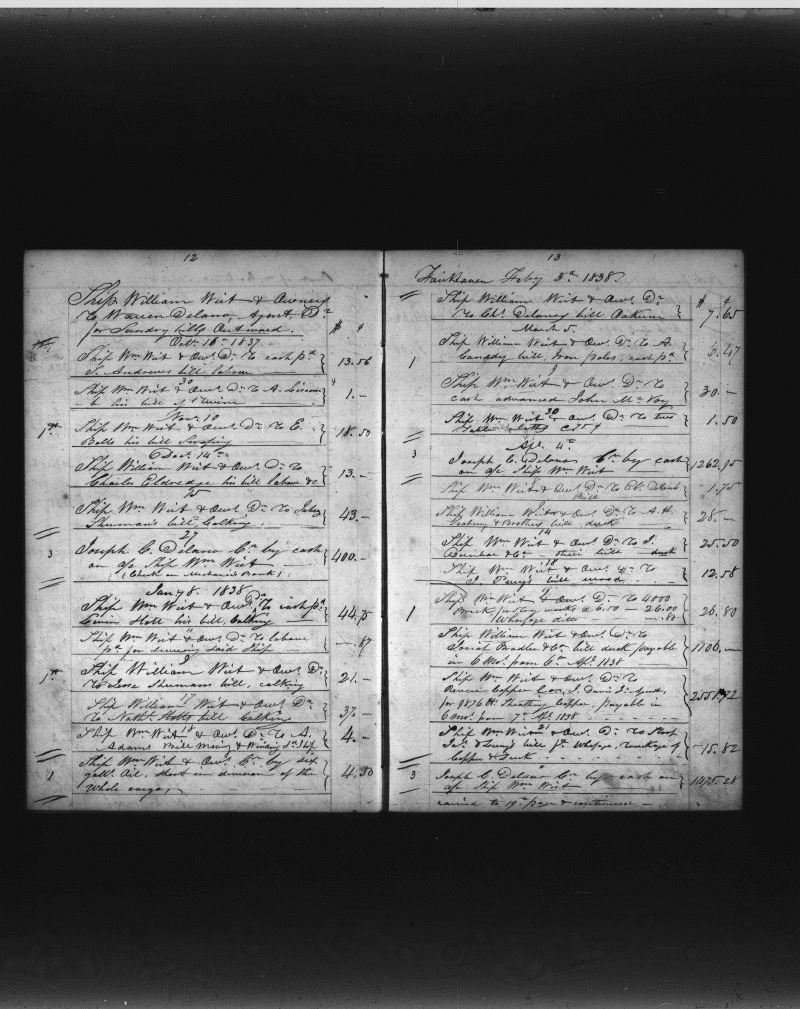 12
Ship William Wirt & Owners
to Warren Delano, Agent, Dr
for Sundry bills Outward. $ ¢
Octr 16th 1837
Ship Wm Wirt & Ows Dr to cash pd
Andrews bill labour 13.56
30
Ship Wm Wirt & Ows Dr to A.
his bill of twine 1.–
Novr 10
Ship Wm Wirt & Ows Dr to E.
Bolls his bill 18.50
Decr 14th
Ship William Wirt & Ows Dr to
Charles Eldredge his bill labour &c 13.–
15
Ship Wm Wirt & Ows Dr to
Sherman's bill, Calking. 43.–
27
3 Joseph C. Delano Cr by cash
on a/c Ship Wm Wirt 400.–
(Check on Mechanic's Bank)
Jany 8. 1838
Ship Wm Wirt & Ows Dr to cash pd
Hott his bill, Calking 44.75
Ship Wm Wirt & Ows Dr to labour
pd for said Ship –.87
9
Ship William Wirt & Ows Dr
to Jesse Shermans bill, calking 21.–
17
Ship William Wirt & Ows Dr
to Nathl bill Calking 37.–
18
Ship Wm Wirt & Ows Dr to A.
Adams Bill & Ship 4.–
Ship Wm Wirt & Ows Cr by six
1 galls Oil, short in division of the 4.50
whole cargo,
13
Fairhaven Feby 3d 1838.
Ship William Wirt & Ows Dr $ ¢
to Chs Delanos bill Oakum 7.65
March 5.
Ship William Wirt & Ows Dr to A.
1 bill, Iron poles, cash pd 6.47
9
Ship Wm Wirt & Ows Dr to
cash advanced John McKoy 30.–
30
Ship Wm Wirt & Ows Dr to two
c 75¢ 1.50
Apl. 4th
3 Joseph C. Delano Cr by cash
on a/c Ship Wm Wirt 1262.95
Ship Wm Wirt & Ows Dr to Delano
Bill 1.75
Ship William Wirt & Ows Dr to A. H.
Seabury & Brothers bill duck 28.–
14
Ship Wm Wirt & Ows Dr to J.
Dunbar & Co their bill duck 25.50
18
Ship Wm Wirt & Ows Dr to
J. Perry's bill wood 12.58
Ship Wm Wirt & Ows Dr to 4000
1 Brick 6.50 – 26.00
Wharfage ditto – .80 26.80
Ship William Wirt & Ows Dr to
Josiah Bradlee & Co bill duck payable
in 6 Mos. from 6th Apl. 1838 1106.–
Ship Wm Wirt & Ows Dr to
Revere Copper Co, J. Davis Jr
for 9876 lb Sheathing Copper, payable in
6 mos. from 7th Apl. 1838 2551.72
Ship Wm Wirt & Ows Dr to
bill for Wharfage, Truckage of
Copper & Duck 15.82
3 Joseph C. Delano Cr by cash on
a/c Ship Wm Wirt
carried to 19th page & continued –